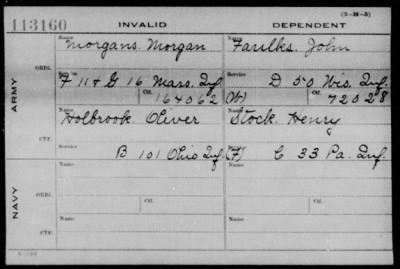 (3-38-5)
113160 INVALID DEPENDENT
Name Name
Morgans. Morgan Faulks. John
ARMY
ORIG. Service
F 11 & G 16 Mass. Inf. D 50 Wis. Inf.
Ctf. 164062 (W) Ctf. 72028
Name Name
Holbrook. Oliver Stock. Henry
CTF.
B 101 Ohio Inf. (F) C 33 Pa. Inf.
NAVY
Name Name
ORIG.
Service Ctf. Service Ctf.
Name Name
CTF.